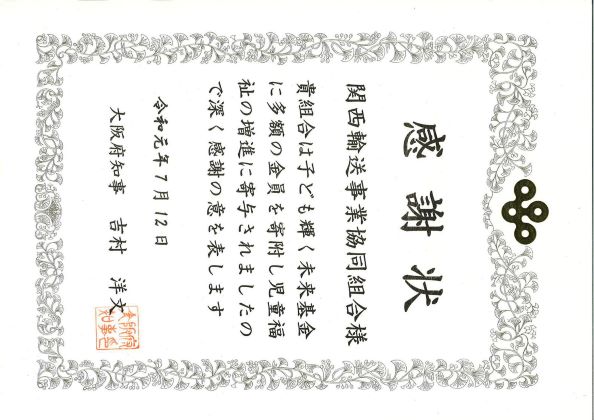 感謝状
関西輸送事業協同組合様
貴組合は子ども輝く未来基金
に多額の金員を寄附し児童福
祉の増進に寄与されましたの
で深く感謝の意を表します
令和元年7月12日
大阪府知事 吉村 洋文